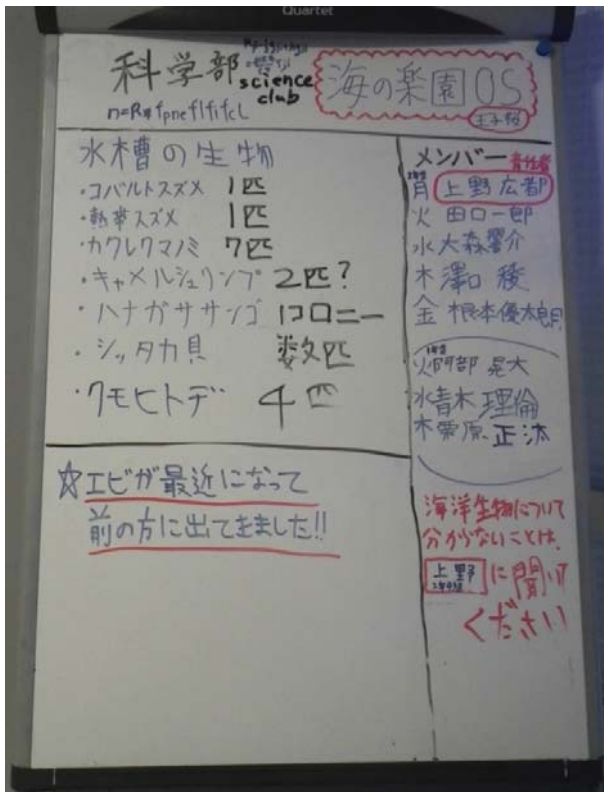 Quartet
科学部
science
club
n=R* fpne flfifcL
海の楽園OS
水槽の生物
・コバルトスズメ 1匹
・熱帯スズメ 1匹
・カクレクマノミ 7匹
・キャメルシュリンプ 2匹?
・ハナガササンゴ 1コロニー
・シッタカ貝 数匹
・クモヒトデ 4匹
☆エビが最近になって
前の方に出てきました!!
メンバー 責任者
月 上野広都
火 田口一郎
水 大森響介
木 澤口 稜
金 根本優太良
火 阿部 晃大
水 青木 理倫
木 栗原 正汰
海洋生物について
分からないことは、
上野 に聞いて
ください